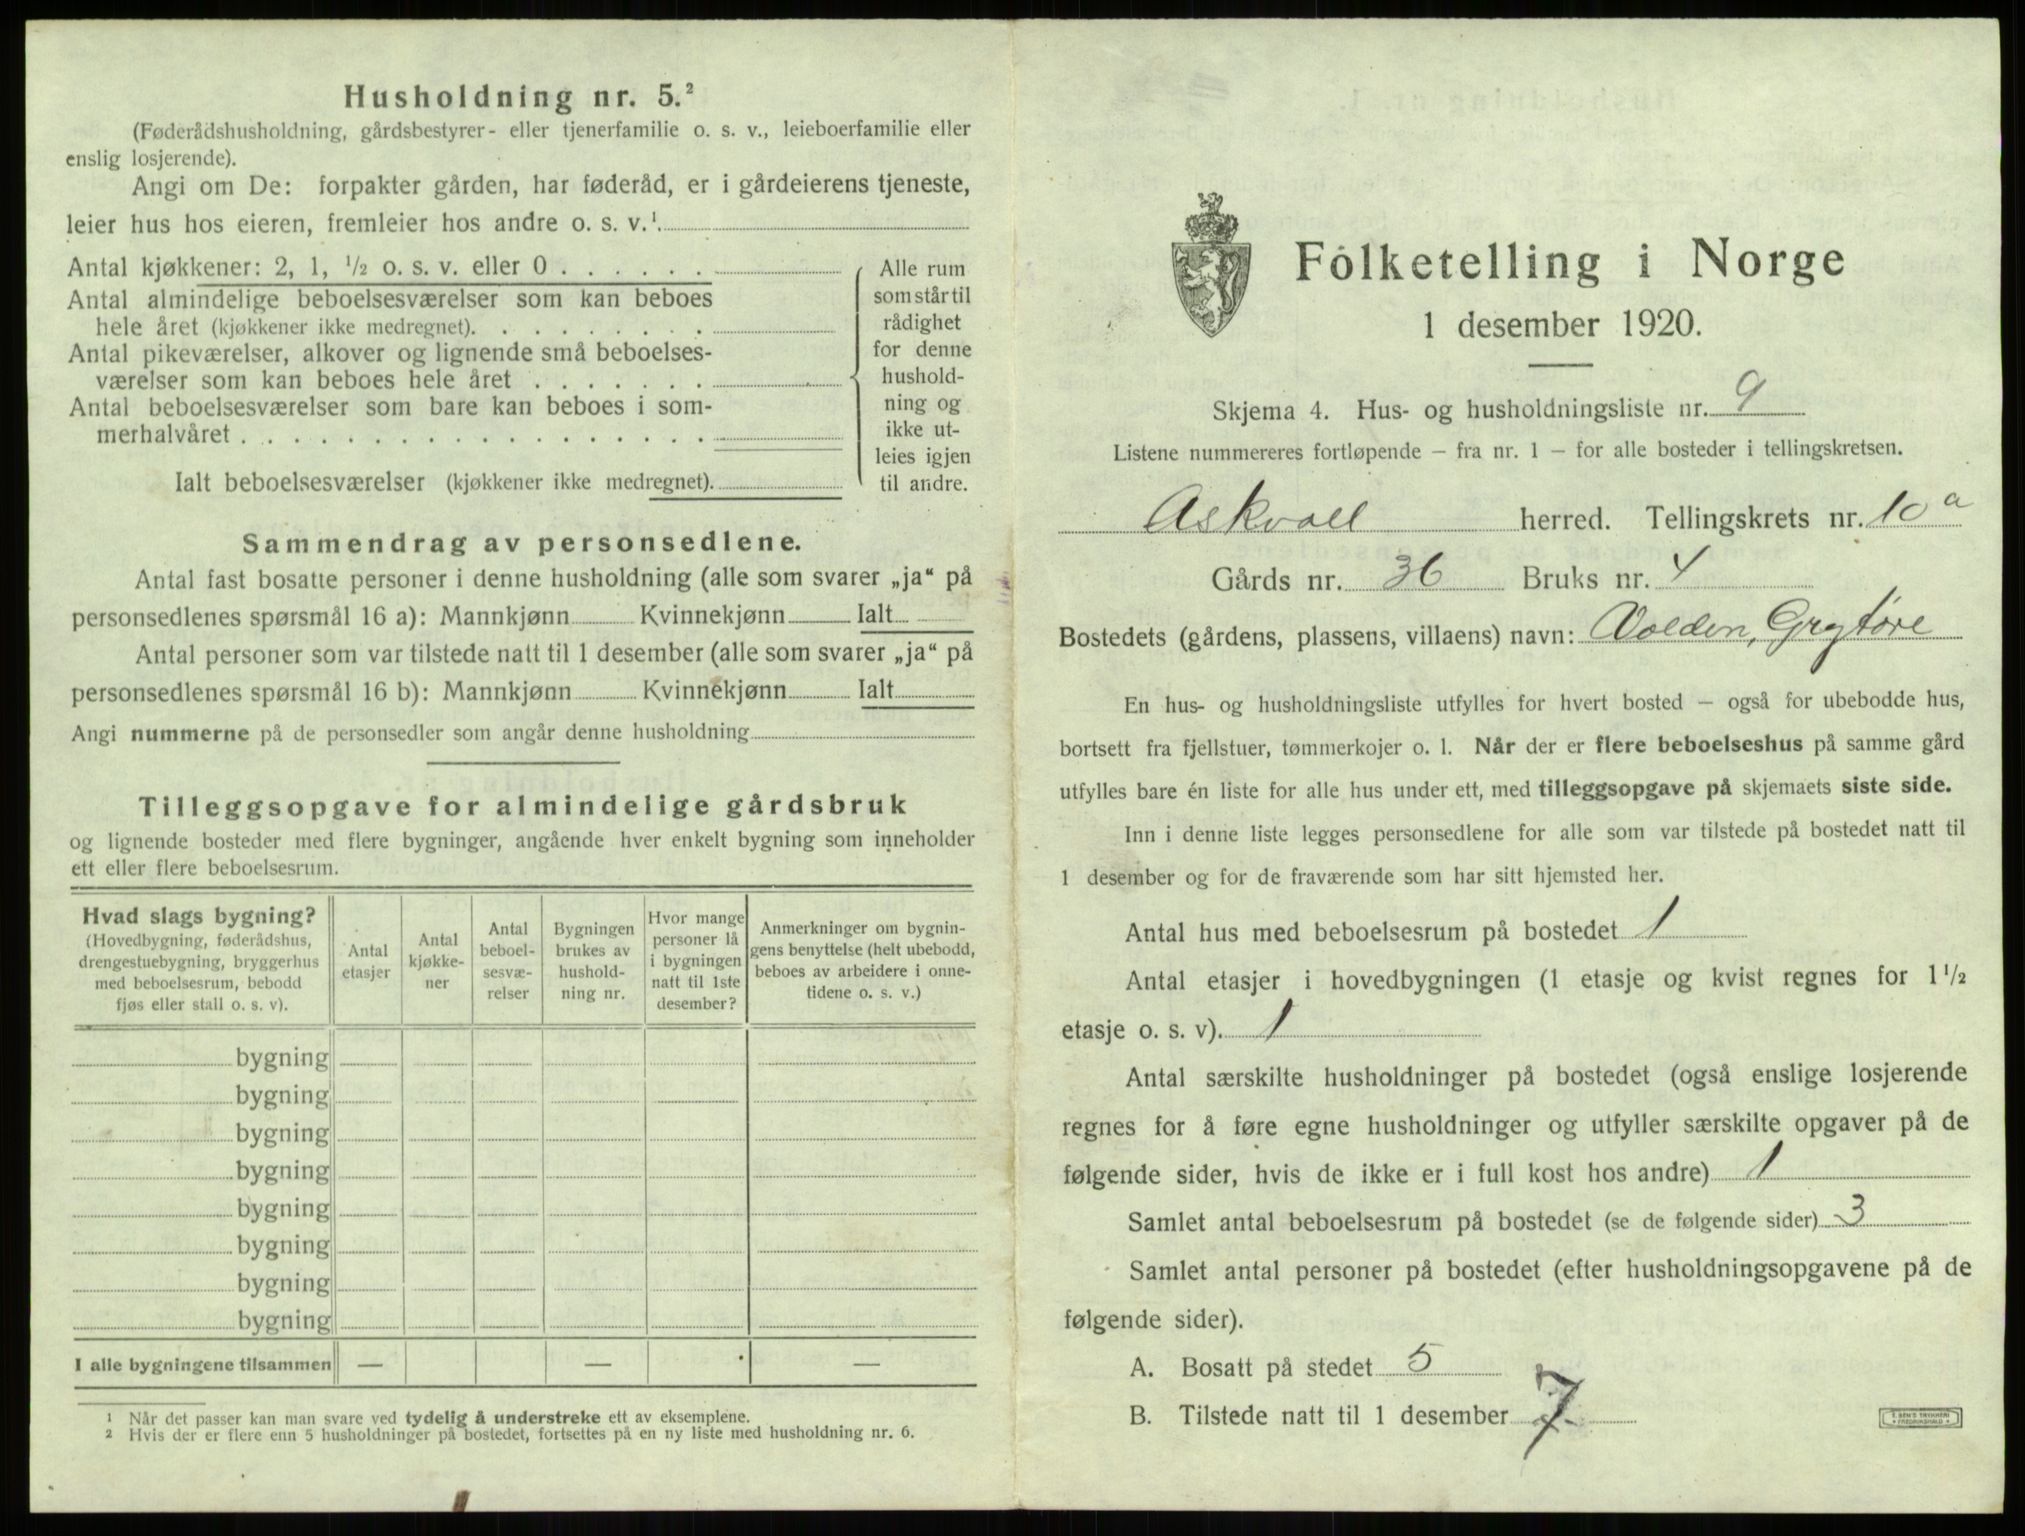 Husholdning nr. 5.²
(Føderådshusholdning, gårdsbestyrer- eller tjenerfamilie o. s. v., leieboerfamilie eller
enslig losjerende).
Angi om De: forpakter gården, har føderåd, er i gårdeierens tjeneste,
leier hus hos eieren, fremleier hos andre o. s. v.¹
Antal kjøkkener: 2, 1, ½ o. s. v. eller 0 . . . . . .
Antal almindelige beboelsesværelser som kan beboes
hele året (kjøkkener ikke medregnet). . . . . . . . .
Antal pikeværelser, alkover og lignende små beboelses-
værelser som kan beboes hele året . . . . . . .
Antal beboelsesværelser som bare kan beboes i som-
merhalvåret . . . . . . . . . . . . . . . . . .
Ialt beboelsesværelser (kjøkkener ikke medregnet).
Alle rum
som står til
rådighet
for denne
hushold-
ning og
ikke ut-
leies igjen
til andre.
Sammendrag av personsedlene.
Antal fast bosatte personer i denne husholdning (alle som svarer „ja“ på
personsedlenes spørsmål 16 a): Mannkjønn Kvinnekjønn Ialt
Antal personer som var tilstede natt til 1 desember (alle som svarer „ja“ på
personsedlenes spørsmål 16 b): Mannkjønn Kvinnekjønn Ialt
Angi nummerne på de personsedler som angår denne husholdning
Tilleggsopgave for almindelige gårdsbruk
og lignende bosteder med flere bygninger, angående hver enkelt bygning som inneholder
ett eller flere beboelsesrum.
Hvad slags bygning?
(Hovedbygning, føderådshus,
drengestuebygning, bryggerhus
med beboelsesrum, bebodd
fjøs eller stall o. s. v).
Antal
etasjer
Antal
kjøkke-
ner
Antal
beboel-
sesvæ-
relser
Bygningen
brukes av
hushold-
ning nr.
Hvor mange
personer lå
i bygningen
natt til 1ste
desember?
Anmerkninger om bygnin-
gens benyttelse (helt ubebodd,
beboes av arbeidere i onne-
tidene o. s. v.)
bygning
bygning
bygning
bygning
bygning
bygning
bygning
bygning
I alle bygningene tilsammen — — —
¹ Når det passer kan man svare ved tydelig å understreke ett av eksemplene.
² Hvis der er flere enn 5 husholdninger på bostedet, fortsettes på en ny liste med husholdning nr. 6.
Folketelling i Norge
1 desember 1920.
Skjema 4. Hus- og husholdningsliste nr. 9
Listene nummereres fortløpende – fra nr. 1 – for alle bosteder i tellingskretsen.
Askvoll herred. Tellingskrets nr. 10 a
Gårds nr. 36 Bruks nr. 4
Bostedets (gårdens, plassens, villaens) navn: Volden, Grytøre
En hus- og husholdningsliste utfylles for hvert bosted – også for ubebodde hus,
bortsett fra fjellstuer, tømmerkojer o. l. Når der er flere beboelseshus på samme gård
utfylles bare én liste for alle hus under ett, med tilleggsopgave på skjemaets siste side.
Inn i denne liste legges personsedlene for alle som var tilstede på bostedet natt til
1 desember og for de fraværende som har sitt hjemsted her.
Antal hus med beboelsesrum på bostedet 1
Antal etasjer i hovedbygningen (1 etasje og kvist regnes for 1½
etasje o. s. v). 1
Antal særskilte husholdninger på bostedet (også enslige losjerende
regnes for å føre egne husholdninger og utfyller særskilte opgaver på de
følgende sider, hvis de ikke er i full kost hos andre) 1
Samlet antal beboelsesrum på bostedet (se de følgende sider) 3
Samlet antal personer på bostedet (efter husholdningsopgavene på de
følgende sider).
A. Bosatt på stedet 5
B. Tilstede natt til 1 desember 7